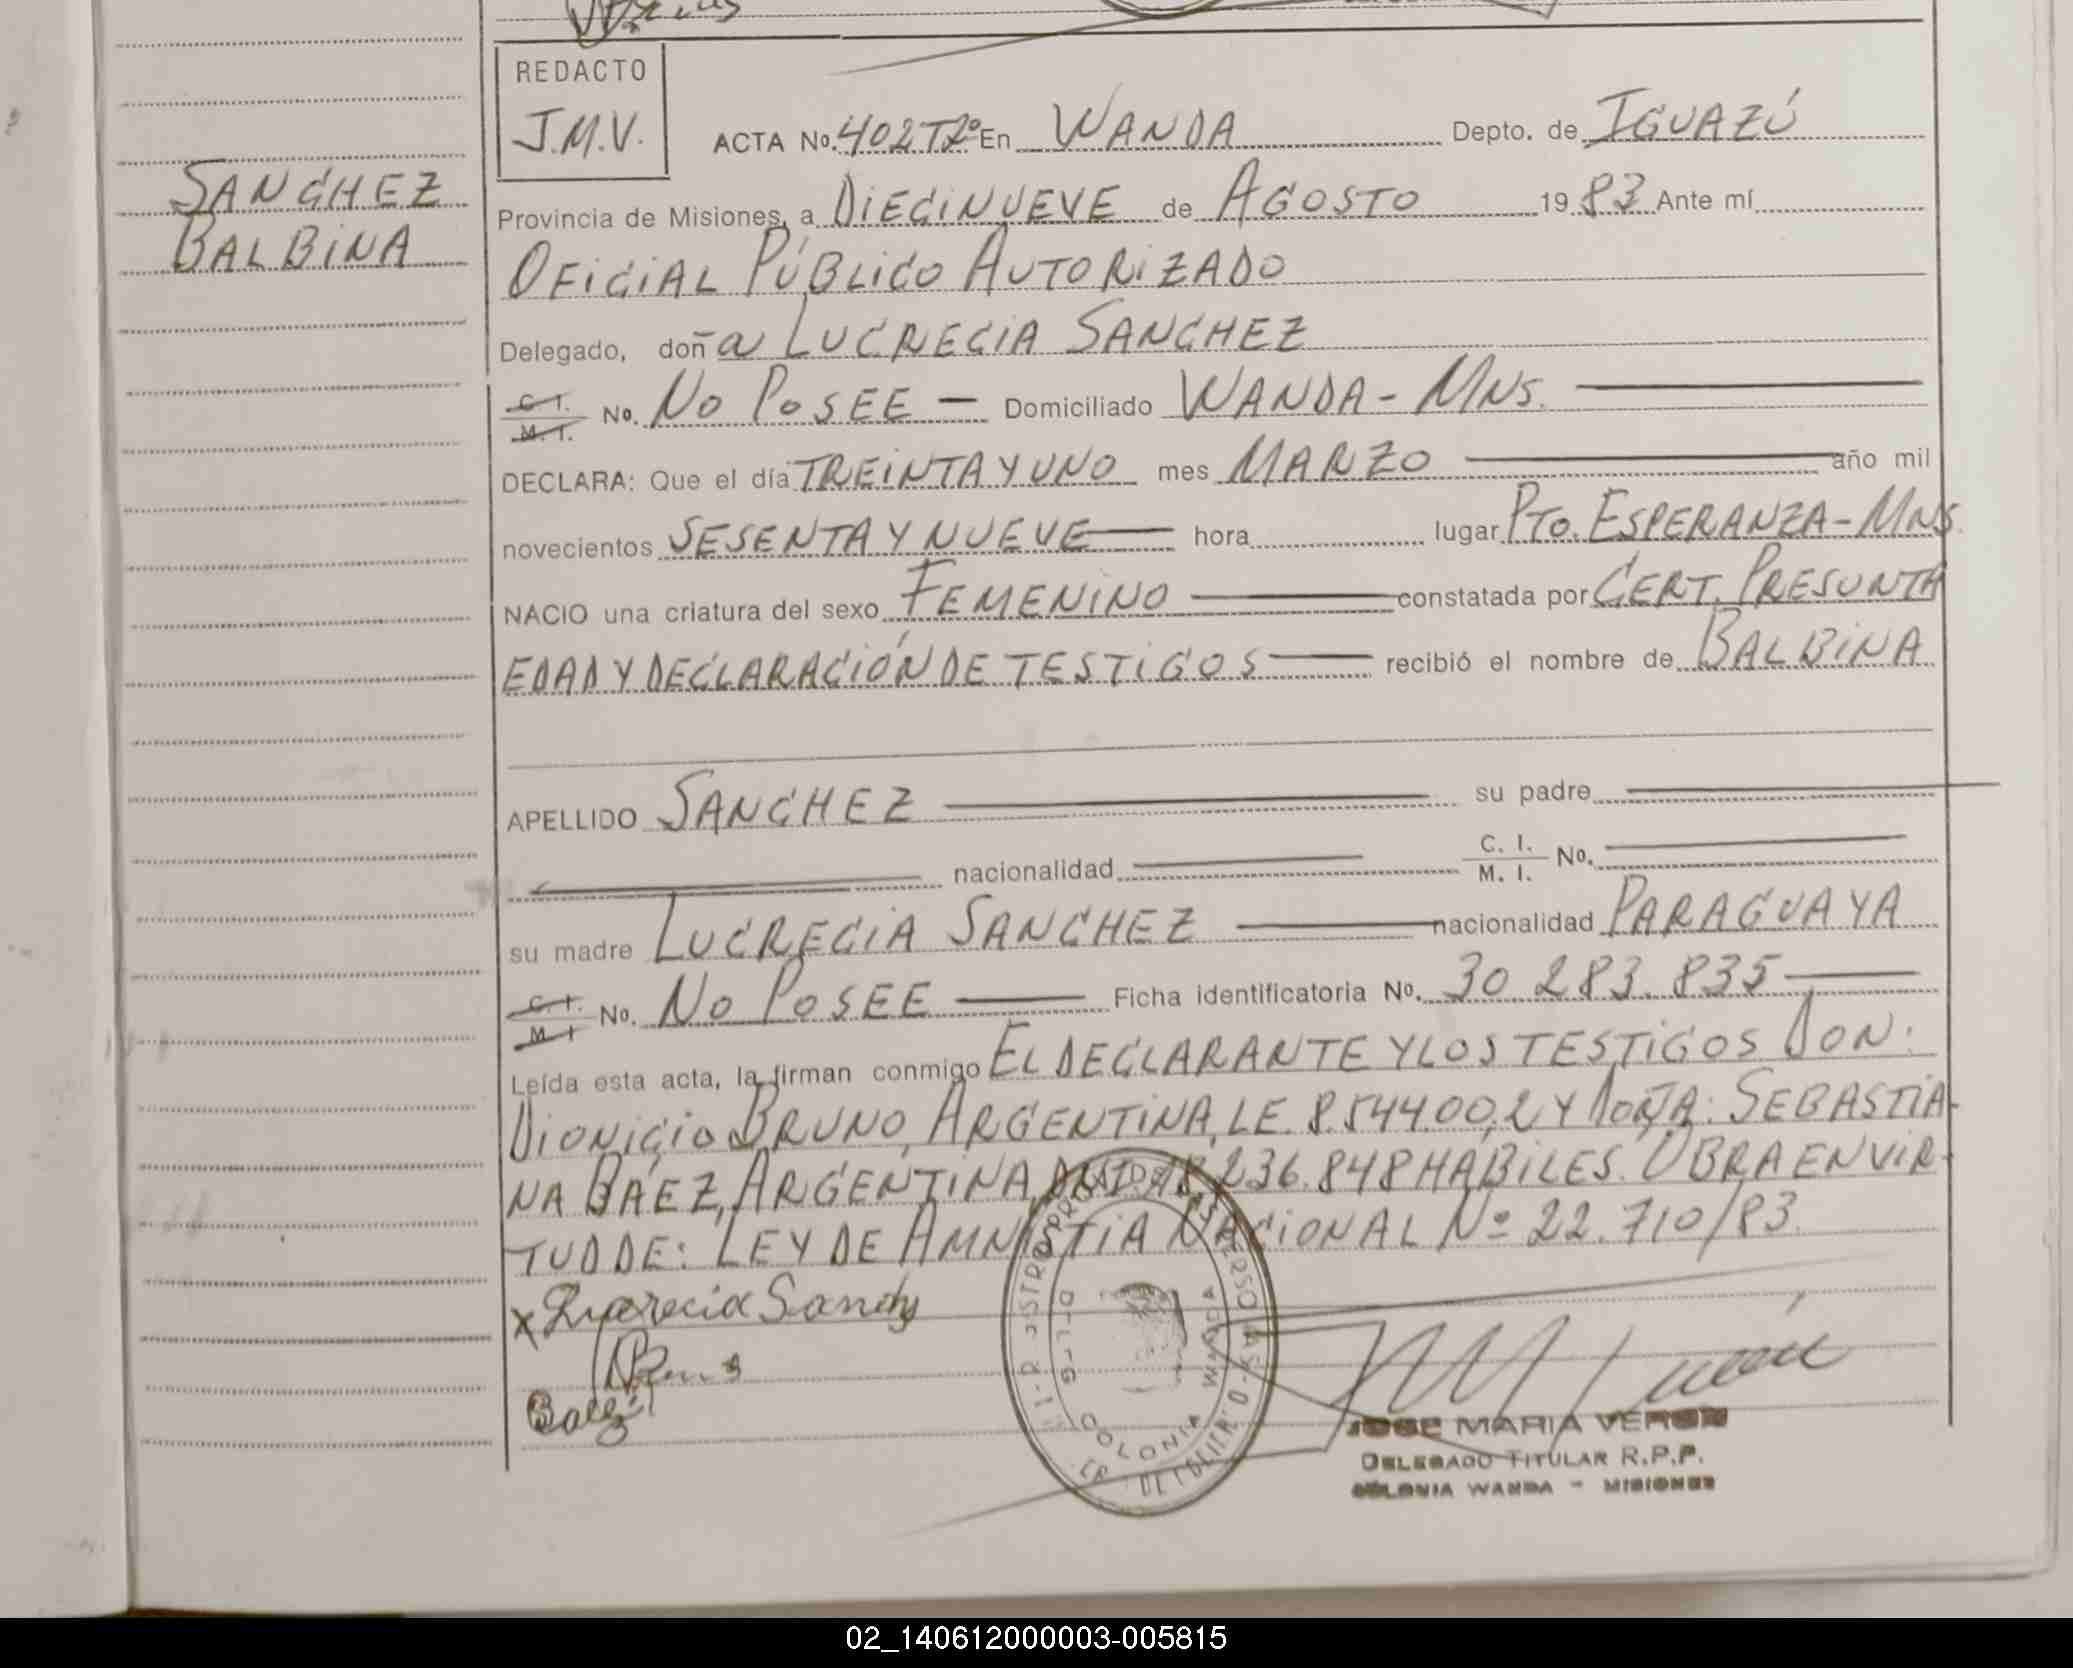 REDACTO
J.M.V.
SANCHEZ
BALBINA
ACTA No. 402T2º En WANDA Depto. de IGUAZÚ
Provincia de Misiones, a DIECINUEVE de AGOSTO 1983 Ante mí
OFICIAL PÚBLICO AUTORIZADO
Delegado, doña LUCRECIA SANCHEZ
C. I. / M. I. No. NO POSEE — Domiciliado WANDA - MNS.
DECLARA: Que el día TREINTA Y UNO mes MARZO año mil
novecientos SESENTA Y NUEVE hora lugar PTO. ESPERANZA - MNS.
NACIO una criatura del sexo FEMENINO constatada por CERT. PRESUNTA
EDAD Y DECLARACIÓN DE TESTIGOS recibió el nombre de BALBINA
APELLIDO SANCHEZ su padre
nacionalidad C. I. / M. I. No.
su madre LUCRECIA SANCHEZ nacionalidad PARAGUAYA
C. I. / M. I No. NO POSEE Ficha identificatoria No. 30 283.835
Leída esta acta, la firman conmigo EL DECLARANTE Y LOS TESTIGOS DON:
DIONICIO BRUNO, ARGENTINA, L.E. 8.544.002 Y DOÑA: SEBASTIA-
NA BAEZ, ARGENTINA, 236.848 HABILES. OBRA EN VIR-
TUD DE: LEY DE AMNISTIA NACIONAL Nº 22.710/83.
x Lucrecia Sanch
Baez
COLONIA WANDA
JOSE MARIA VERON
DELEGADO TITULAR R.P.P.
COLONIA WANDA - MISIONES
02_140612000003-005815